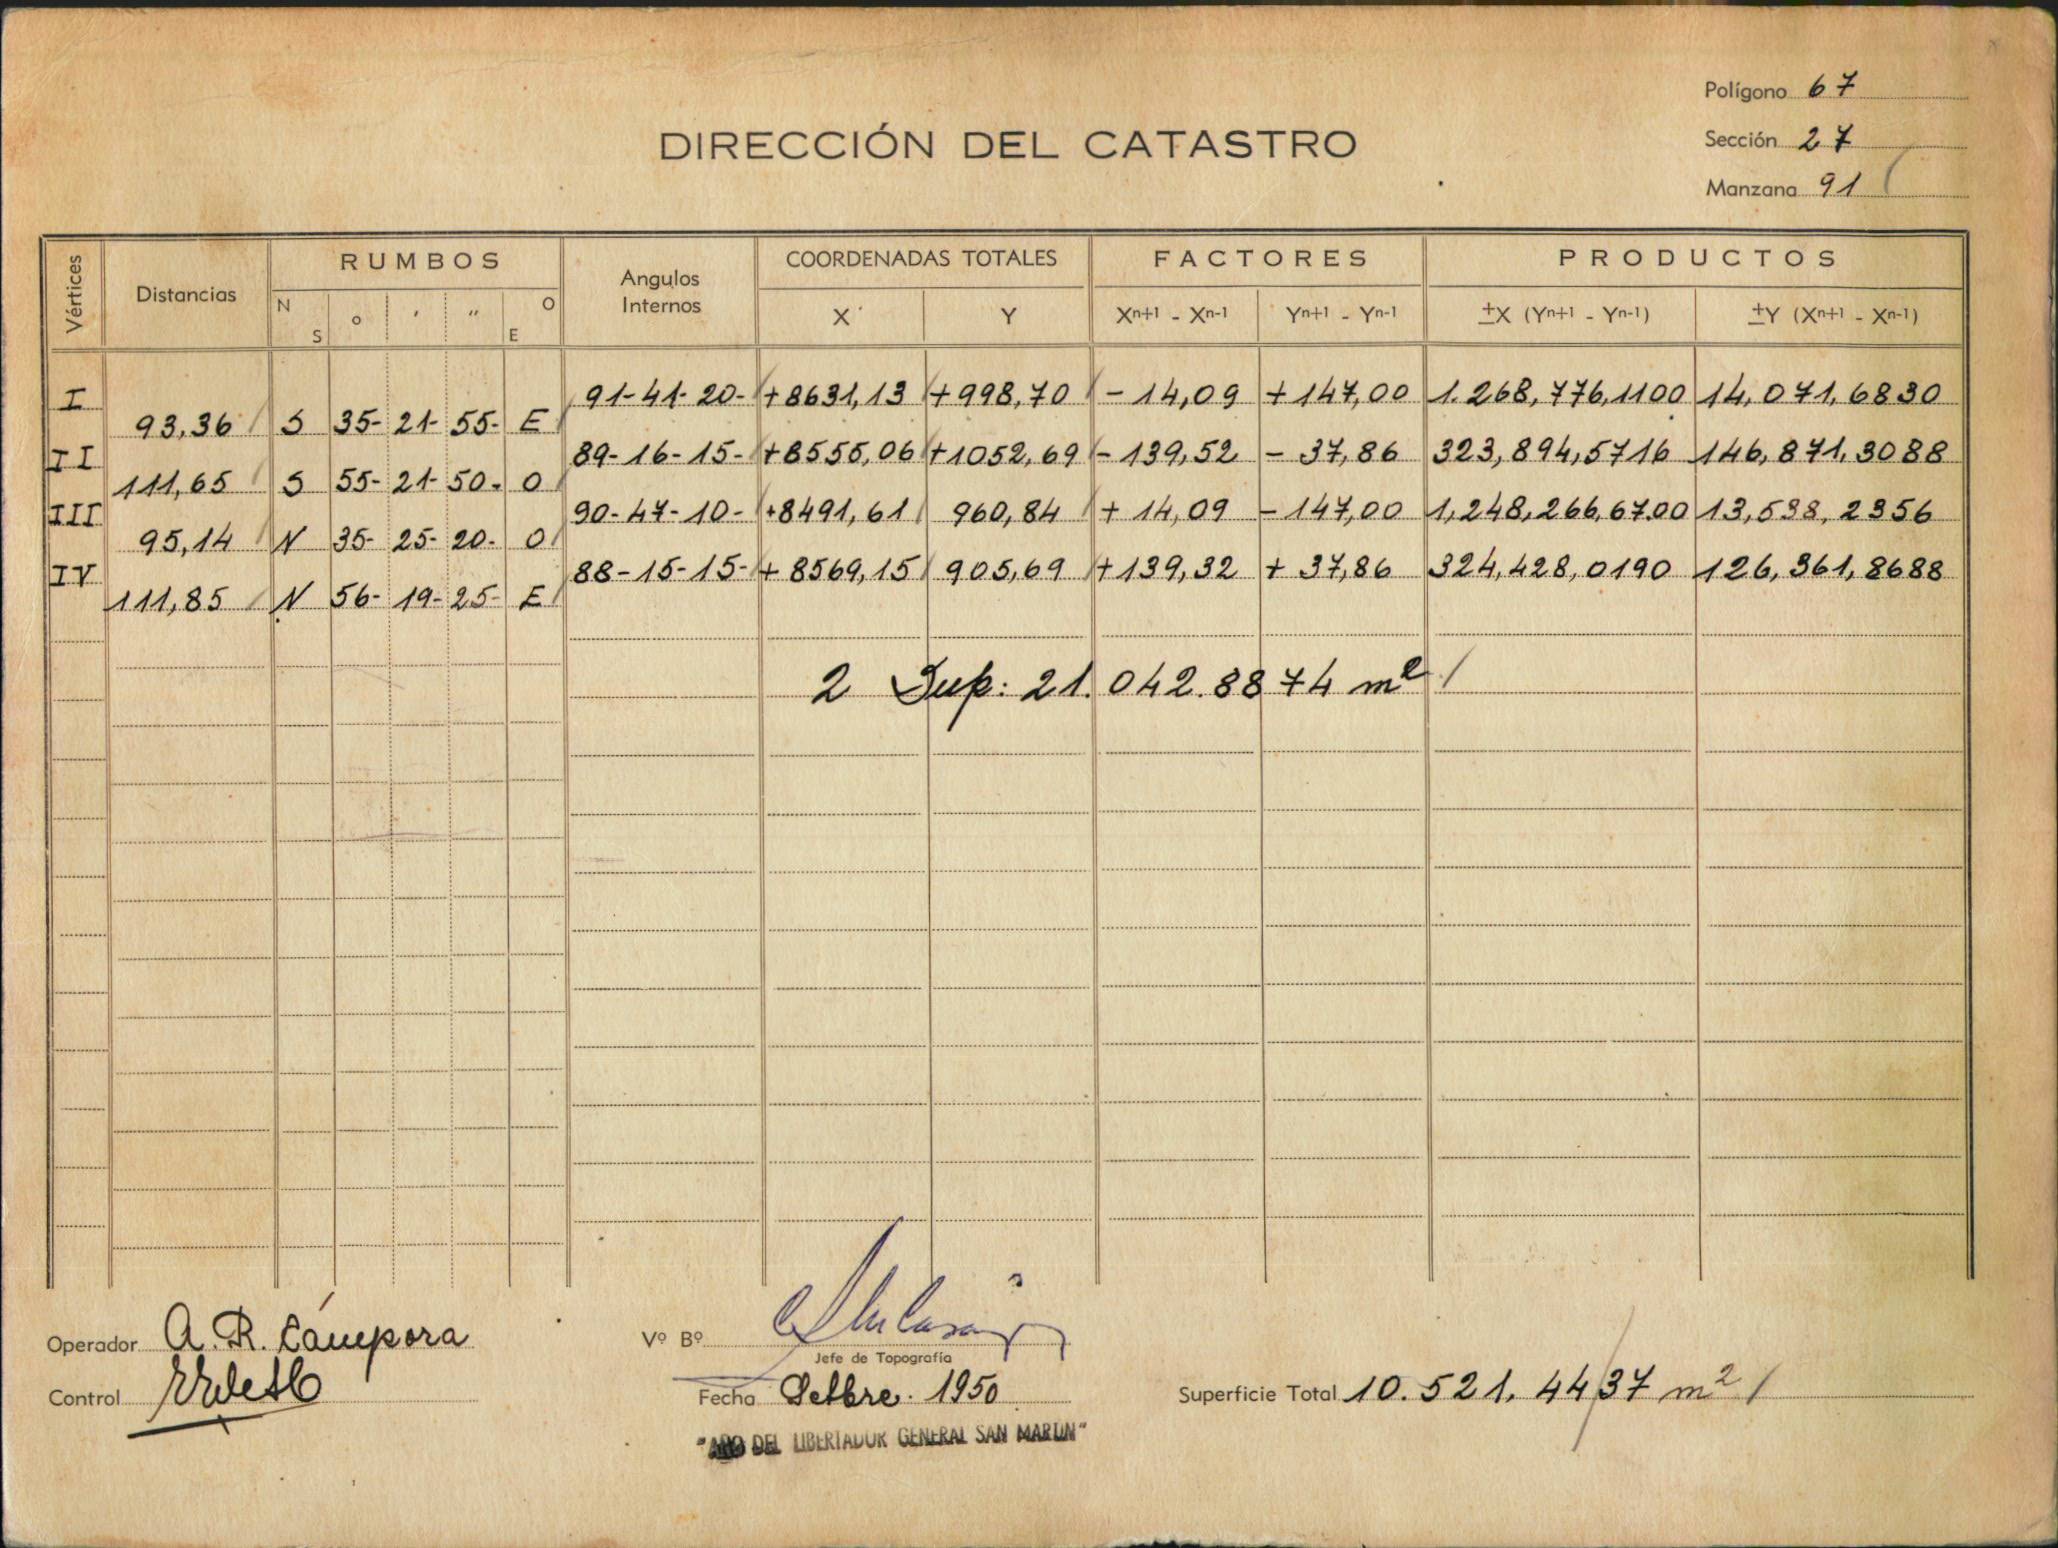 Polígono 67
DIRECCIÓN DEL CATASTRO
Sección 27
Manzana 91
Vértices Distancias RUMBOS Angulos Internos COORDENADAS TOTALES FACTORES PRODUCTOS
N S ° ' " O E X Y Xn+1 - Xn-1 Yn+1 - Yn-1 ±X (Yn+1 - Yn-1) ±Y (Xn+1 - Xn-1)
I 91-41-20- +8631,13 +998,70 -14,09 +147,00 1.268,776,1100 14,071,6830
93,36 S 35- 21- 55- E
II 89-16-15- +8555,06 +1052,69 -139,52 -37,86 323,894,5716 146,871,3088
111,65 S 55- 21- 50- O
III 90-47-10- +8491,61 960,84 +14,09 -147,00 1,248,266,6700 13,538,2356
95,14 N 35- 25- 20- O
IV 88-15-15- +8569,15 905,69 +139,32 +37,86 324,428,0190 126,361,8688
111,85 N 56- 19- 25- E
2 Sup: 21.042.8874 m²
Operador A. R. Cámpora
Vº Bº
Jefe de Topografía
Control
Fecha Setbre. 1950
Superficie Total 10.521,4437 m²
"AÑO DEL LIBERTADOR GENERAL SAN MARTIN"